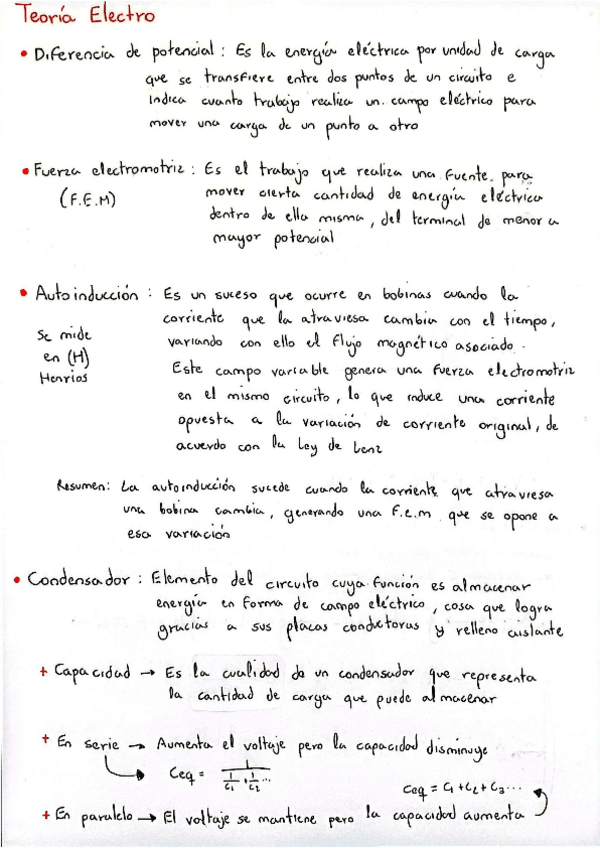 Teoría Electro
• Diferencia de potencial : Es la energía eléctrica por unidad de carga
que se transfiere entre dos puntos de un circuito e
indica cuanto trabajo realiza un campo eléctrico para
mover una carga de un punto a otro
• Fuerza electromotriz : Es el trabajo que realiza una fuente para
(F.E.M) mover cierta cantidad de energía eléctrica
dentro de ella misma, del terminal de menor a
mayor potencial
• Autoinducción : Es un suceso que ocurre en bobinas cuando la
corriente que la atraviesa cambia con el tiempo,
Se mide variando con ello el flujo magnético asociado.
en (H) Este campo variable genera una fuerza electromotriz
Henrios en el mismo circuito, lo que induce una corriente
opuesta a la variación de corriente original, de
acuerdo con la Ley de Lenz
Resumen: La autoinducción sucede cuando la corriente que atraviesa
una bobina cambia, generando una f.e.m que se opone a
esa variación
• Condensador : Elemento del circuito cuya función es almacenar
energía en forma de campo eléctrico, cosa que logra
gracias a sus placas conductoras y relleno aislante
+ Capacidad → Es la cualidad de un condensador que representa
la cantidad de carga que puede almacenar
+ En serie → Aumenta el voltaje pero la capacidad disminuye
Ceq = 1 / (1/C1 + 1/C2 ...)
Ceq = C1 + C2 + C3 ...
+ En paralelo → El voltaje se mantiene pero la capacidad aumenta